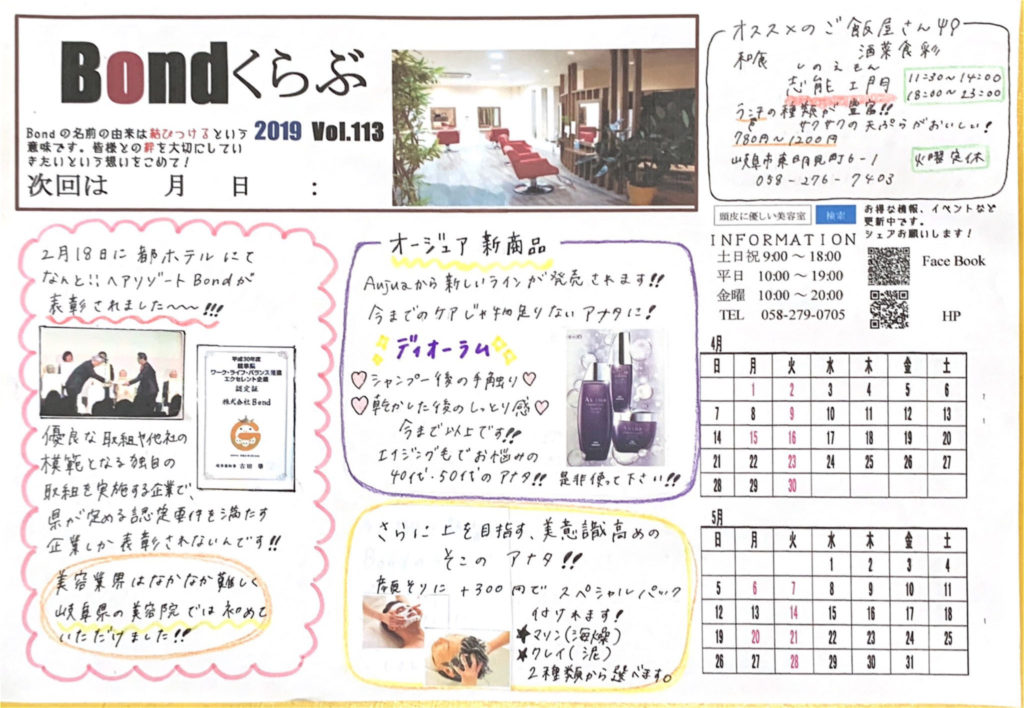 Bondくらぶ
Bondの名前の由来は結びつけるという
意味です。皆様との絆を大切にしてい
きたいという想いをこめて!
2019 Vol.113
次回は 月 日 :
オススメのご飯屋さん49
和食
酒菜食彩
しのえもん
志能ェ門
11:30～14:00
18:00～23:00
ランチの種類が豊富!!
サクサクの天ぷらがおいしい!
780円～1200円
岐阜市東明見町6-1
火曜定休
058-276-7403
頭皮に優しい美容室 検索
お得な情報、イベントなど
更新中です。
シェアお願いします!
INFORMATION
土日祝 9:00 ～ 18:00
平日 10:00 ～ 19:00
金曜 10:00 ～ 20:00
TEL 058-279-0705
Face Book
HP
2月18日に都ホテルにて
なんと!!ヘアリゾートBondが
表彰されました～～～!!!
平成30年度
岐阜県
ワーク・ライフ・バランス推進
エクセレント企業
認定証
株式会社Bond
岐阜県知事 古田 肇
優良な取組や他社の
模範となる独自の
取組を実施する企業で、
県が定める認定要件を満たす
企業しか表彰されないんです!!
美容業界はなかなか難しく
岐阜県の美容院では初めて
いただけました!!
オージュア 新商品
Aujuaから新しいラインが発売されます!!
今までのケアじゃ物足りないアナタに!
ディオーラム
♡シャンプー後の手触り♡
♡乾かした後のしっとり感♡
今まで以上です!!
エイジング毛でお悩みの
40代・50代のアナタ!! 是非使って下さい!!
さらに上を目指す、美意識高めの
そこのアナタ!!
顔そりに +300円で スペシャルパック
付けれます!
★マリン(海燥)
★クレイ(泥)
2種類から選べます。
4月
日 月 火 水 木 金 土
1 2 3 4 5 6
7 8 9 10 11 12 13
14 15 16 17 18 19 20
21 22 23 24 25 26 27
28 29 30
5月
日 月 火 水 木 金 土
1 2 3 4
5 6 7 8 9 10 11
12 13 14 15 16 17 18
19 20 21 22 23 24 25
26 27 28 29 30 31